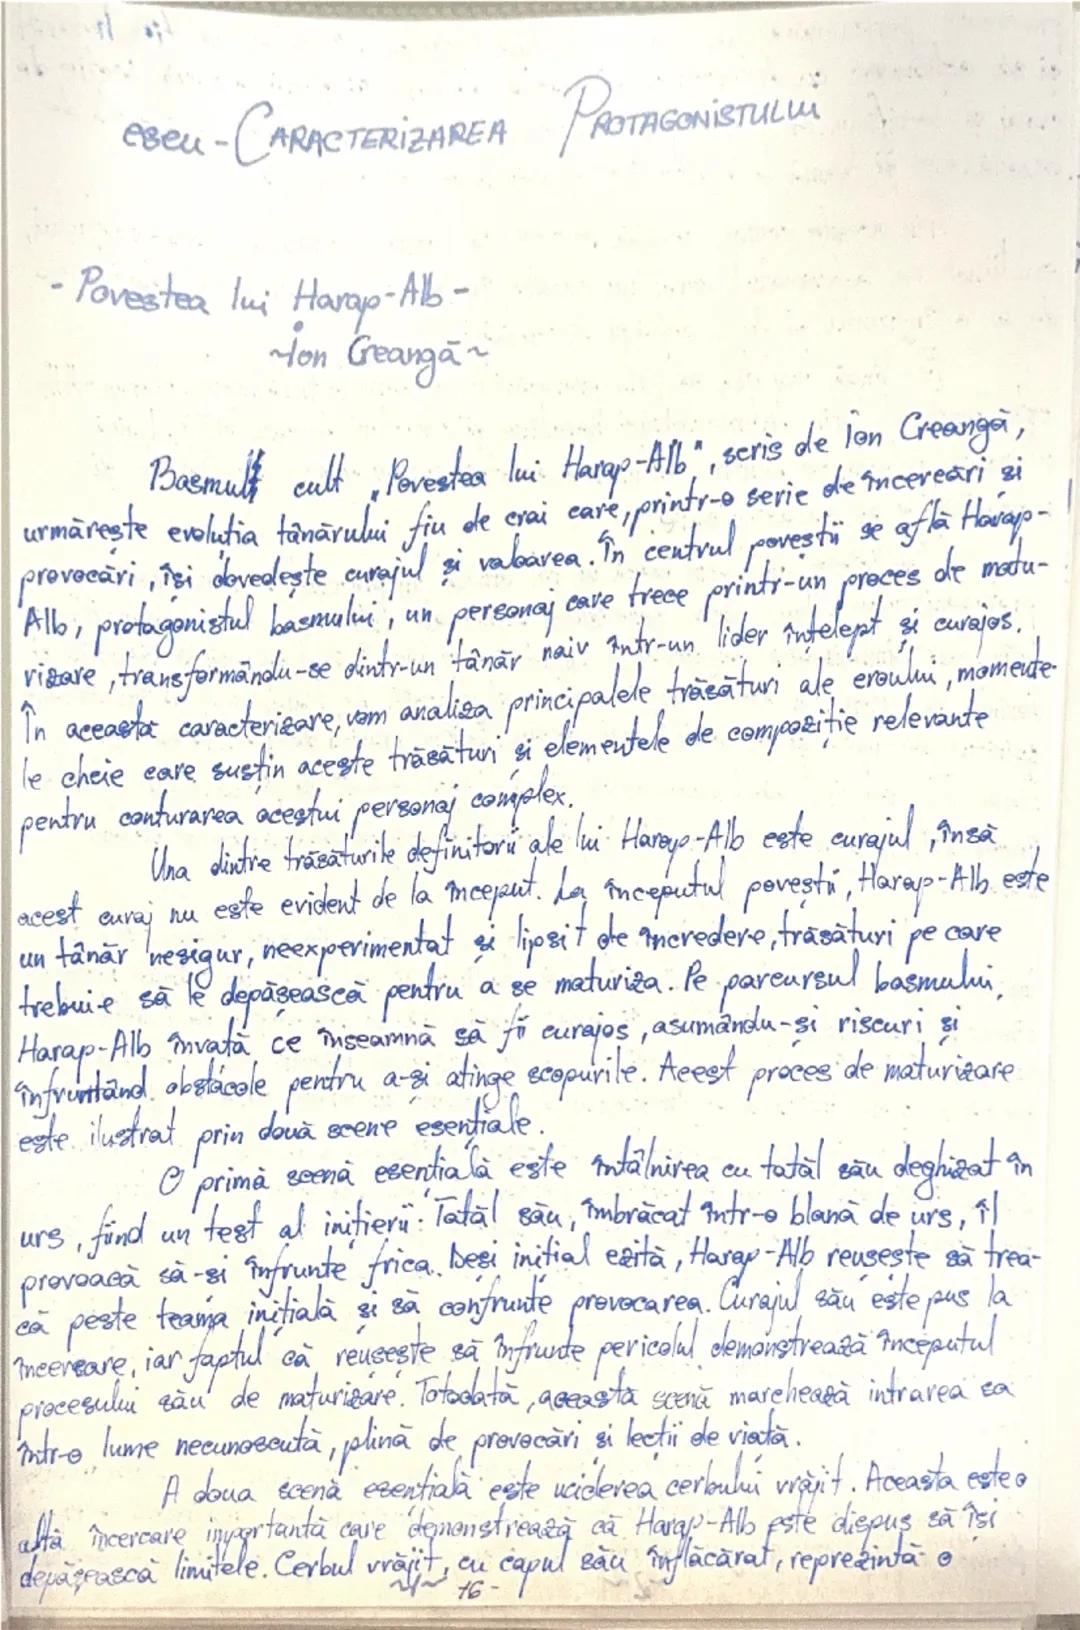 eseu - CARACTERIZAREA PROTAGONISTULUI
- Povestea lui Harap-Alb -
~Ion Creangă~
Basmul cult „Povestea lui Harap-Alb", scris de Ion Creangă,
urmărește evoluția tânărului fiu de crai care, printr-o serie de încercări și
provocări, își dovedește curajul și valoarea. În centrul poveștii se află Harap-
Alb, protagonistul basmului, un personaj care trece printr-un proces de matu-
rizare, transformându-se dintr-un tânăr naiv într-un lider înțelept și curajos.
În această caracterizare, vom analiza principalele trăsături ale eroului, momente-
le cheie care susțin aceste trăsături și elementele de compoziție relevante
pentru conturarea acestui personaj complex.
Una dintre trăsăturile definitorii ale lui Harap-Alb este curajul, însă
acest curaj nu este evident de la început. La începutul poveștii, Harap-Alb este
un tânăr nesigur, neexperimentat și lipsit de încredere, trăsături pe care
trebuie să le depășească pentru a se maturiza. Pe parcursul basmului,
Harap-Alb învață ce înseamnă să fii curajos, asumându-și riscuri și
înfruntând obstacole pentru a-și atinge scopurile. Acest proces de maturizare
este ilustrat prin două scene esențiale.
O primă scenă esențială este întâlnirea cu tatăl său deghizat în
urs, fiind un test al inițierii. Tatăl său, îmbrăcat într-o blană de urs, îl
provoacă să-și înfrunte frica. Deși inițial ezită, Harap-Alb reușește să trea-
că peste teama inițială și să confrunte provocarea. Curajul său este pus la
încercare, iar faptul că reușește să înfrunte pericolul demonstrează începutul
procesului său de maturizare. Totodată, această scenă marchează intrarea sa
într-o lume necunoscută, plină de provocări și lecții de viață.
A doua scenă esențială este uciderea cerbului vrăjit. Aceasta este o
altă încercare importantă care demonstrează că Harap-Alb este dispus să își
depășească limitele. Cerbul vrăjit, cu capul său înflăcărat, reprezintă o
16 -